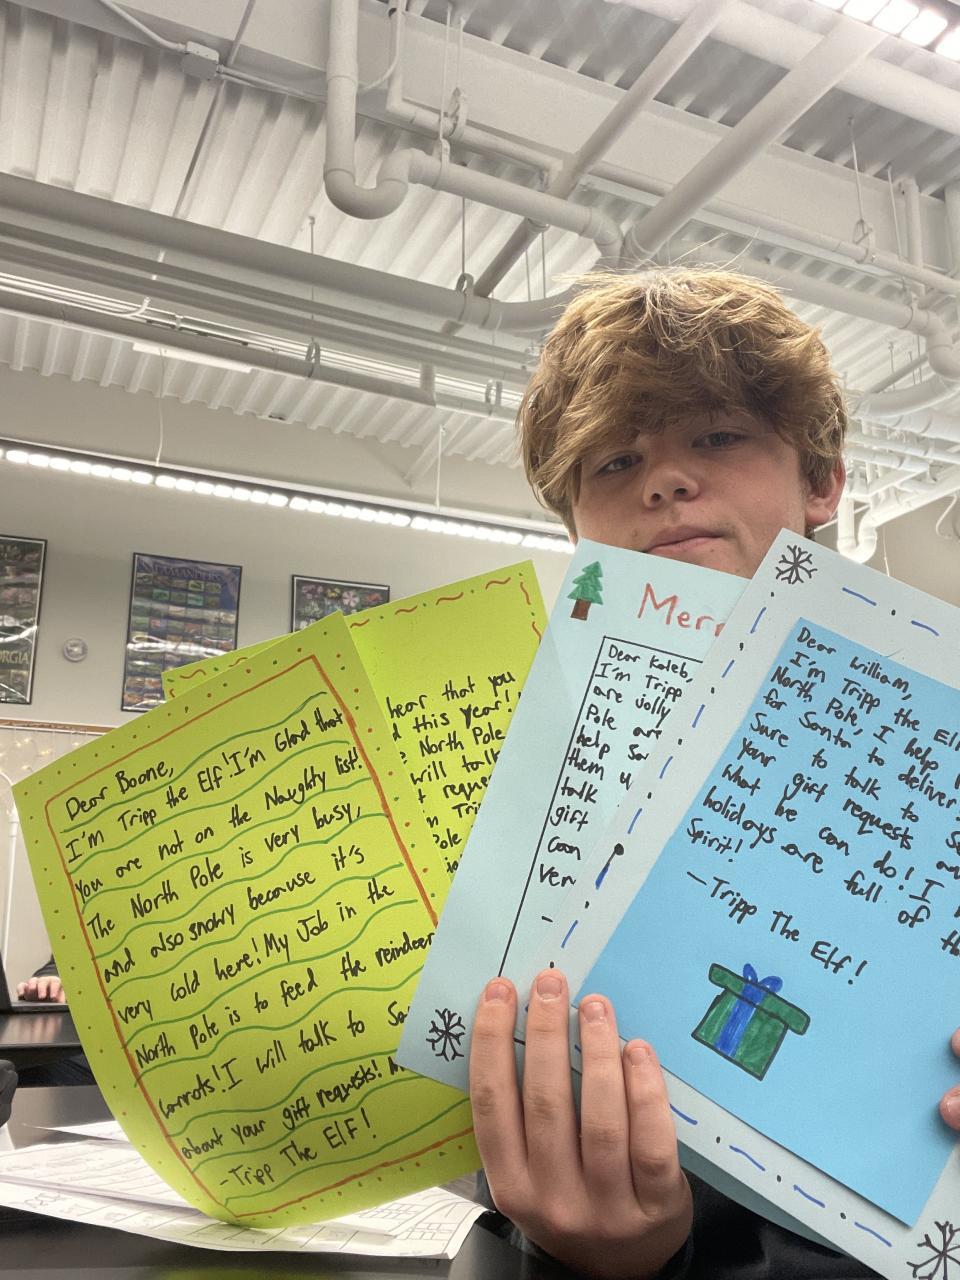 Dear Boone,
I'm Tripp the Elf! I'm Glad that
you are not on the Naughty list!
The North Pole is very busy,
and also snowy because it's
very cold here! My Job in the
North Pole is to feed the reindeer
carrots! I will talk to Sa
about your gift requests!
-Tripp The Elf!
hear that you
d this year!
e North Pole
will talk
t reque
n Tri
Pole
Merr
Dear Kaleb,
I'm Tripp
are jolly
Pole are
help Sa
them u
talk
gift
can
ver
-
Dear William,
I'm Tripp the Elf
North Pole, I help
for Santa to deliver
Sure to talk to S
your gift requests an
what he can do! I
holidays are full of th
Spirit!
-Tripp The Elf!
RGIA